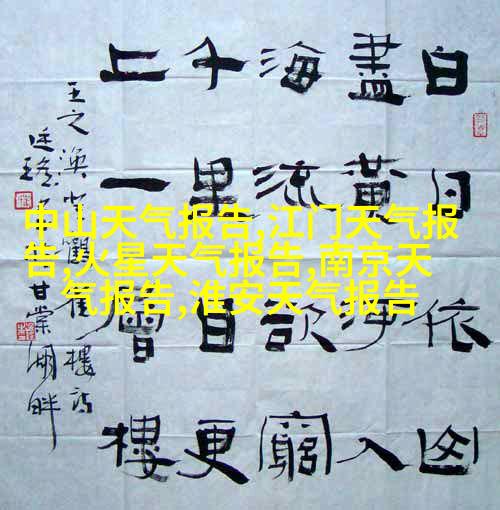 白日依山
盡黃河入
海流欲窮
千里目更
上一層樓
王之涣登鸛雀樓詩
甘棠湖畔
中山天气报告,江门天气报
告,火星天气报告,南京天
气报告,淮安天气报告